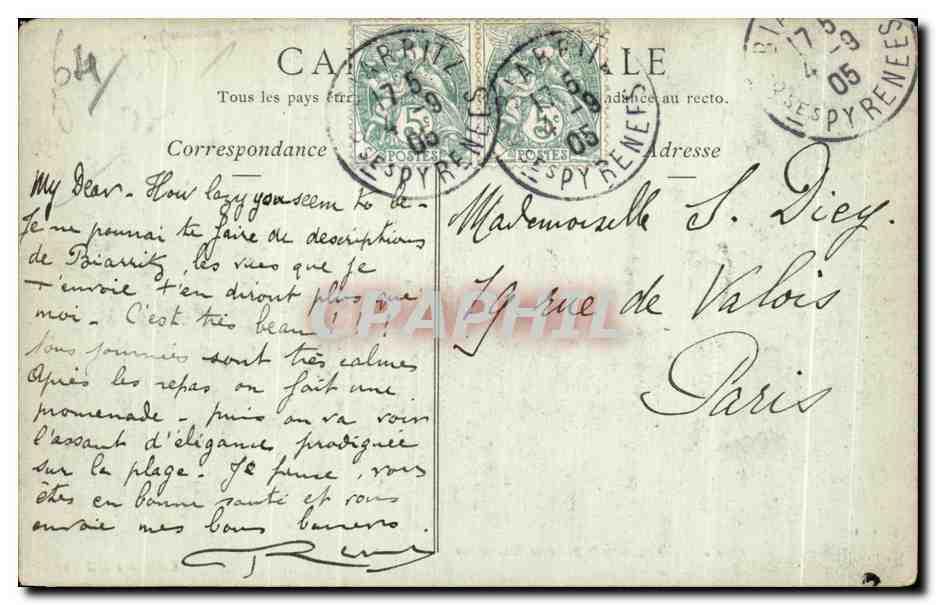 64
CARTE POSTALE
Tous les pays étrangers n'acceptent pas la correspondance au recto.
Correspondance
Adresse
BIARRITZ
17 5
4 -9
05
BSES PYRENEES
5c
POSTES
BIARRITZ
17 5
4 -9
05
BSES PYRENEES
5c
POSTES
BIARRITZ
17 5
4 -9
05
BSES PYRENEES
My Dear - How lazy you seem to be -
Je ne pourrai te faire de descriptions
de Biarritz, les vues que je
t'envoie t'en diront plus que
moi - C'est très beau ! ! !
journées sont très calmes
Après les repas on fait une
promenade - puis on va voir
l'assaut d'élégance prodiguée
sur la plage - Je pense, vous
êtes en bonne santé et vous
envoie mes bons baisers.
Mademoiselle S. Diey.
19 rue de Valois
Paris
CRAPHIL